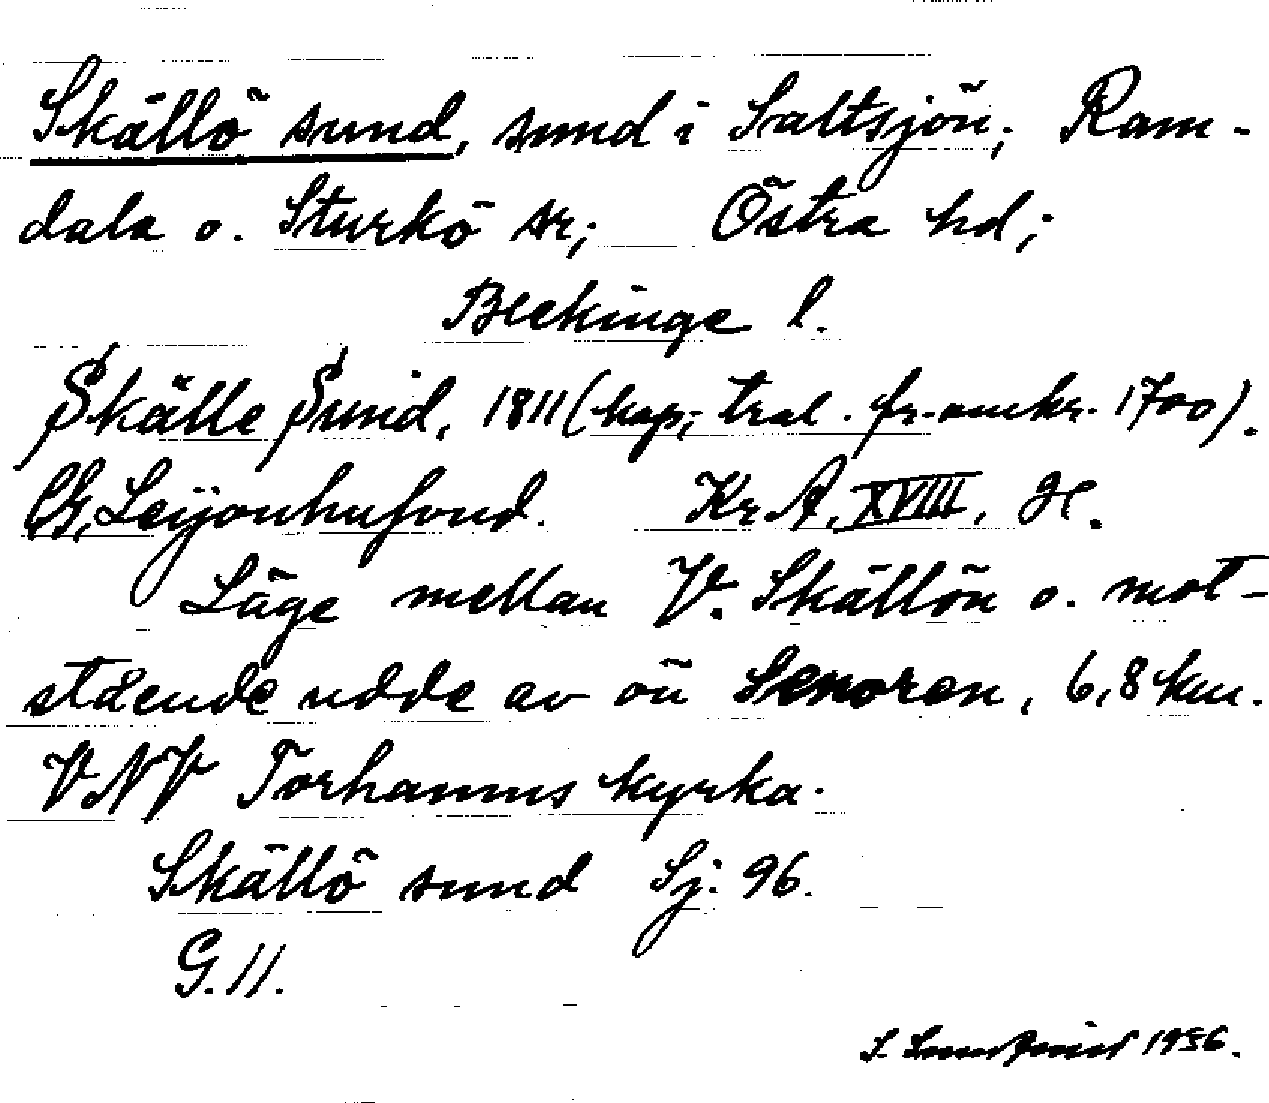 Skällö sund, sund i Saltsjön; Ram-
dala o. Sturkö sr; Östra hd;
Blekinge l.
Skälle Sund, 1811 (kop; tral. fr. omkr. 1700).
CG, Leijonhufvud. Kr. A, XVIII, H.
Läge mellan V. Skällön o. mot-
stående udde av ön Senoren, 6,8 km.
VNV Torhamns kyrka.
Skällö sund Sj. 96.
G. 11.
1956.